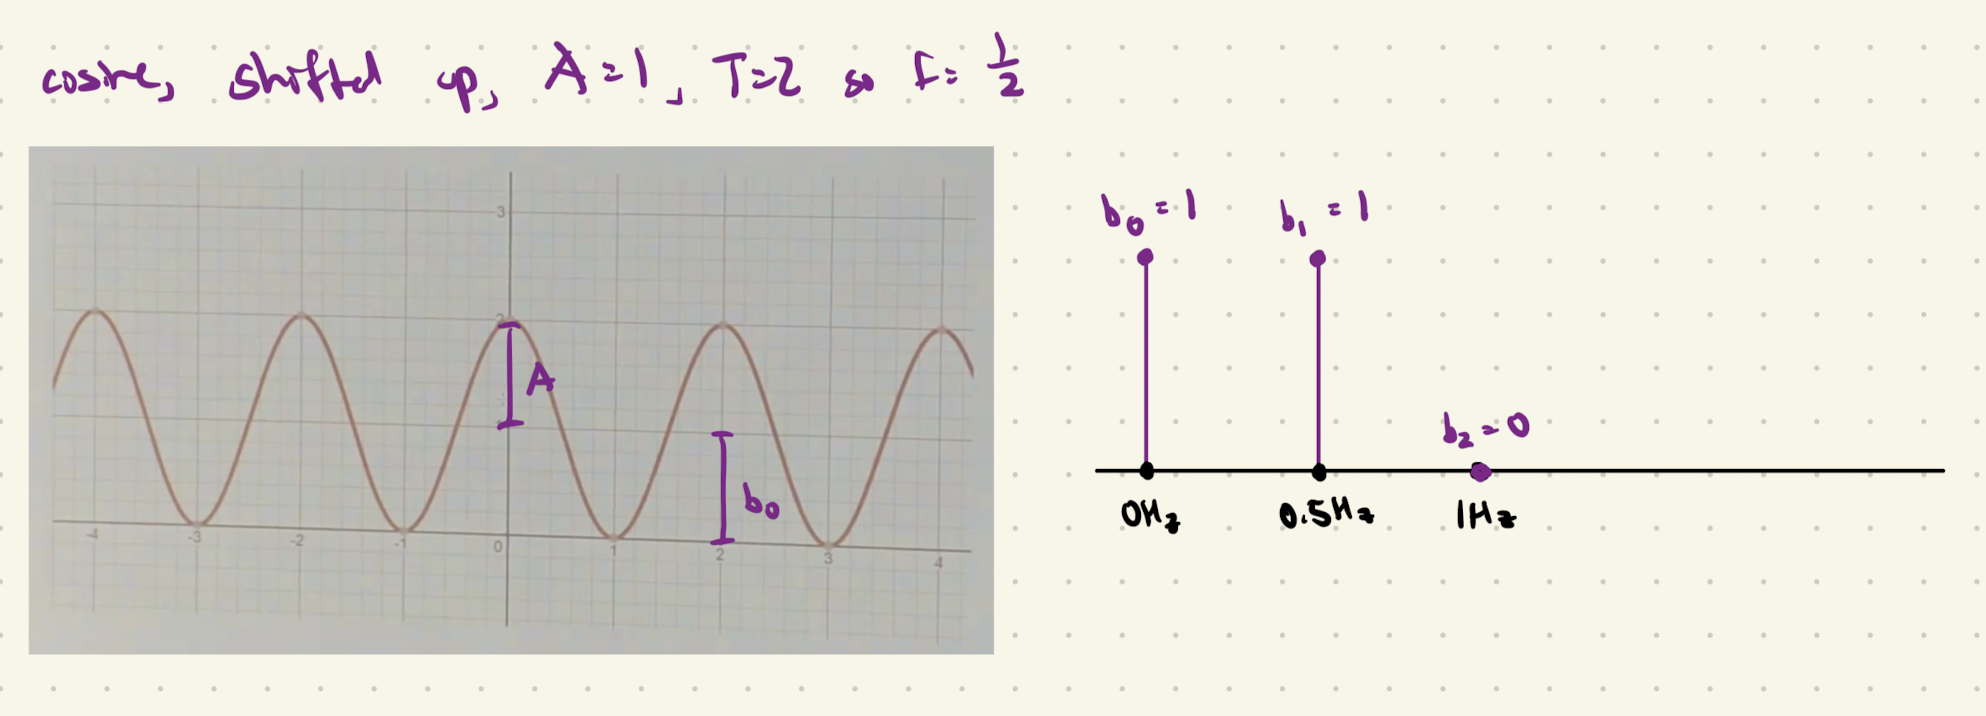 cosine, shifted up, A=1, T=2 so f=1/2
3
2
A
b₀
-4 -3 -2 -1 0 1 2 3 4
b₀=1 b₁=1
b₂=0
0Hz 0.5Hz 1Hz